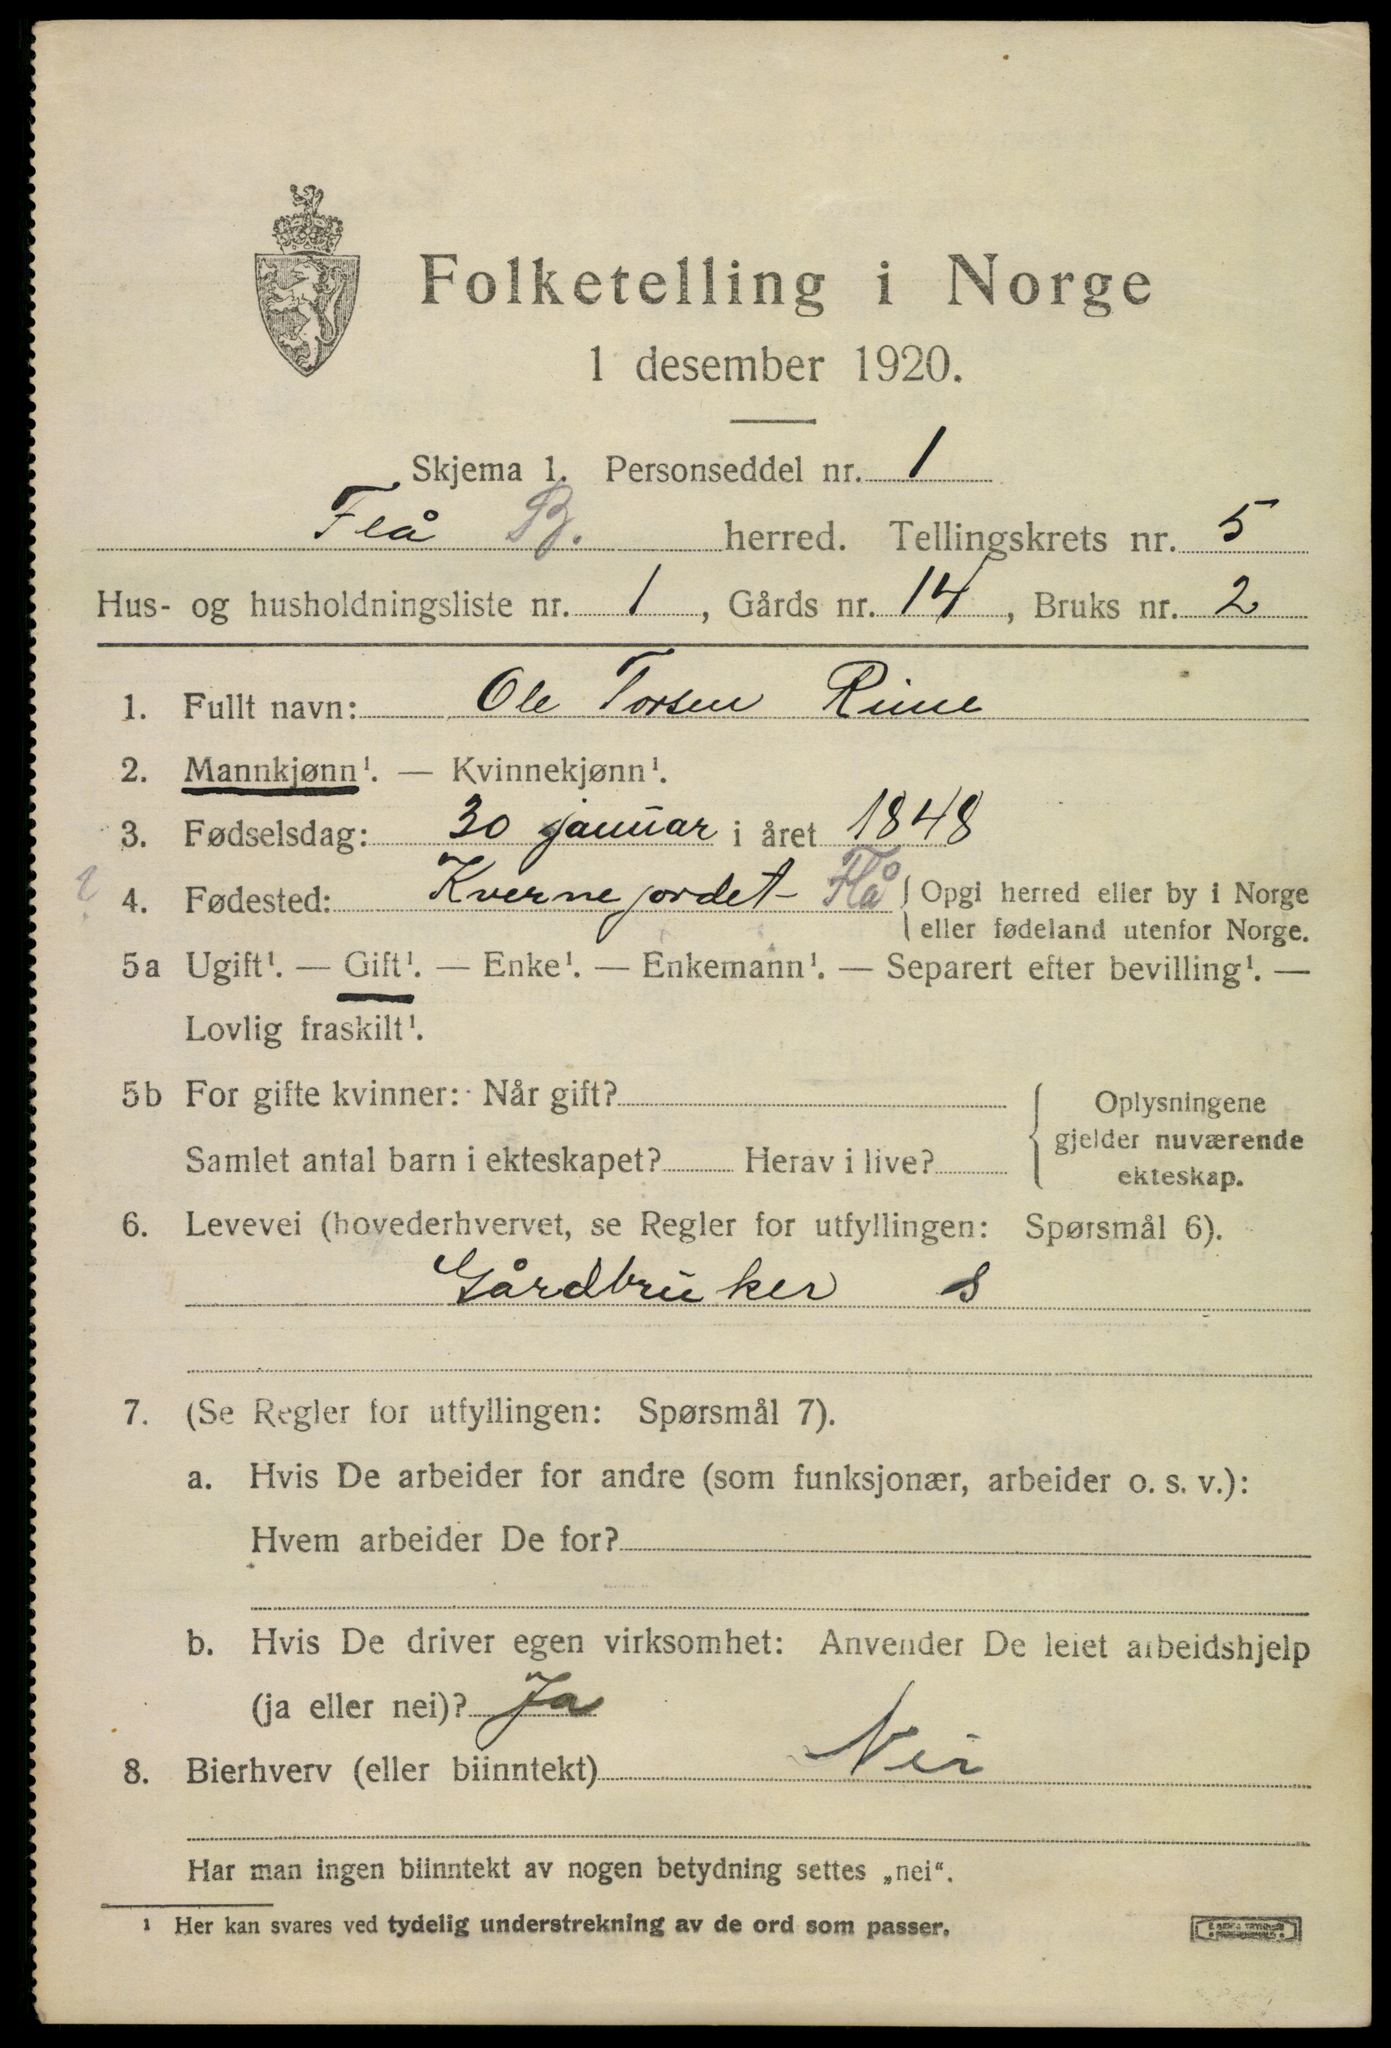 Folketelling i Norge
1 desember 1920.
Skjema 1. Personseddel nr. 1
Flå B. herred. Tellingskrets nr. 5
Hus- og husholdningsliste nr. 1, Gårds nr. 14, Bruks nr. 2
1. Fullt navn: Ole Torsen Rime
2. Mannkjønn¹. — Kvinnekjønn¹.
3. Fødselsdag: 30 januar i året 1848
? 4. Fødested: Kvernejordet Flå { Opgi herred eller by i Norge
eller fødeland utenfor Norge.
5a Ugift¹. — Gift¹. — Enke¹. — Enkemann¹. — Separert efter bevilling¹. —
Lovlig fraskilt¹.
5b For gifte kvinner: Når gift?
Samlet antal barn i ekteskapet? Herav i live?
Oplysningene
gjelder nuværende
ekteskap.
6. Levevei (hovederhvervet, se Regler for utfyllingen: Spørsmål 6).
Gårdbruker s
7. (Se Regler for utfyllingen: Spørsmål 7).
a. Hvis De arbeider for andre (som funksjonær, arbeider o. s. v.):
Hvem arbeider De for?
b. Hvis De driver egen virksomhet: Anvender De leiet arbeidshjelp
(ja eller nei)? Ja
8. Bierhverv (eller biinntekt) Nei
Har man ingen biinntekt av nogen betydning settes „nei“.
¹ Her kan svares ved tydelig understrekning av de ord som passer.